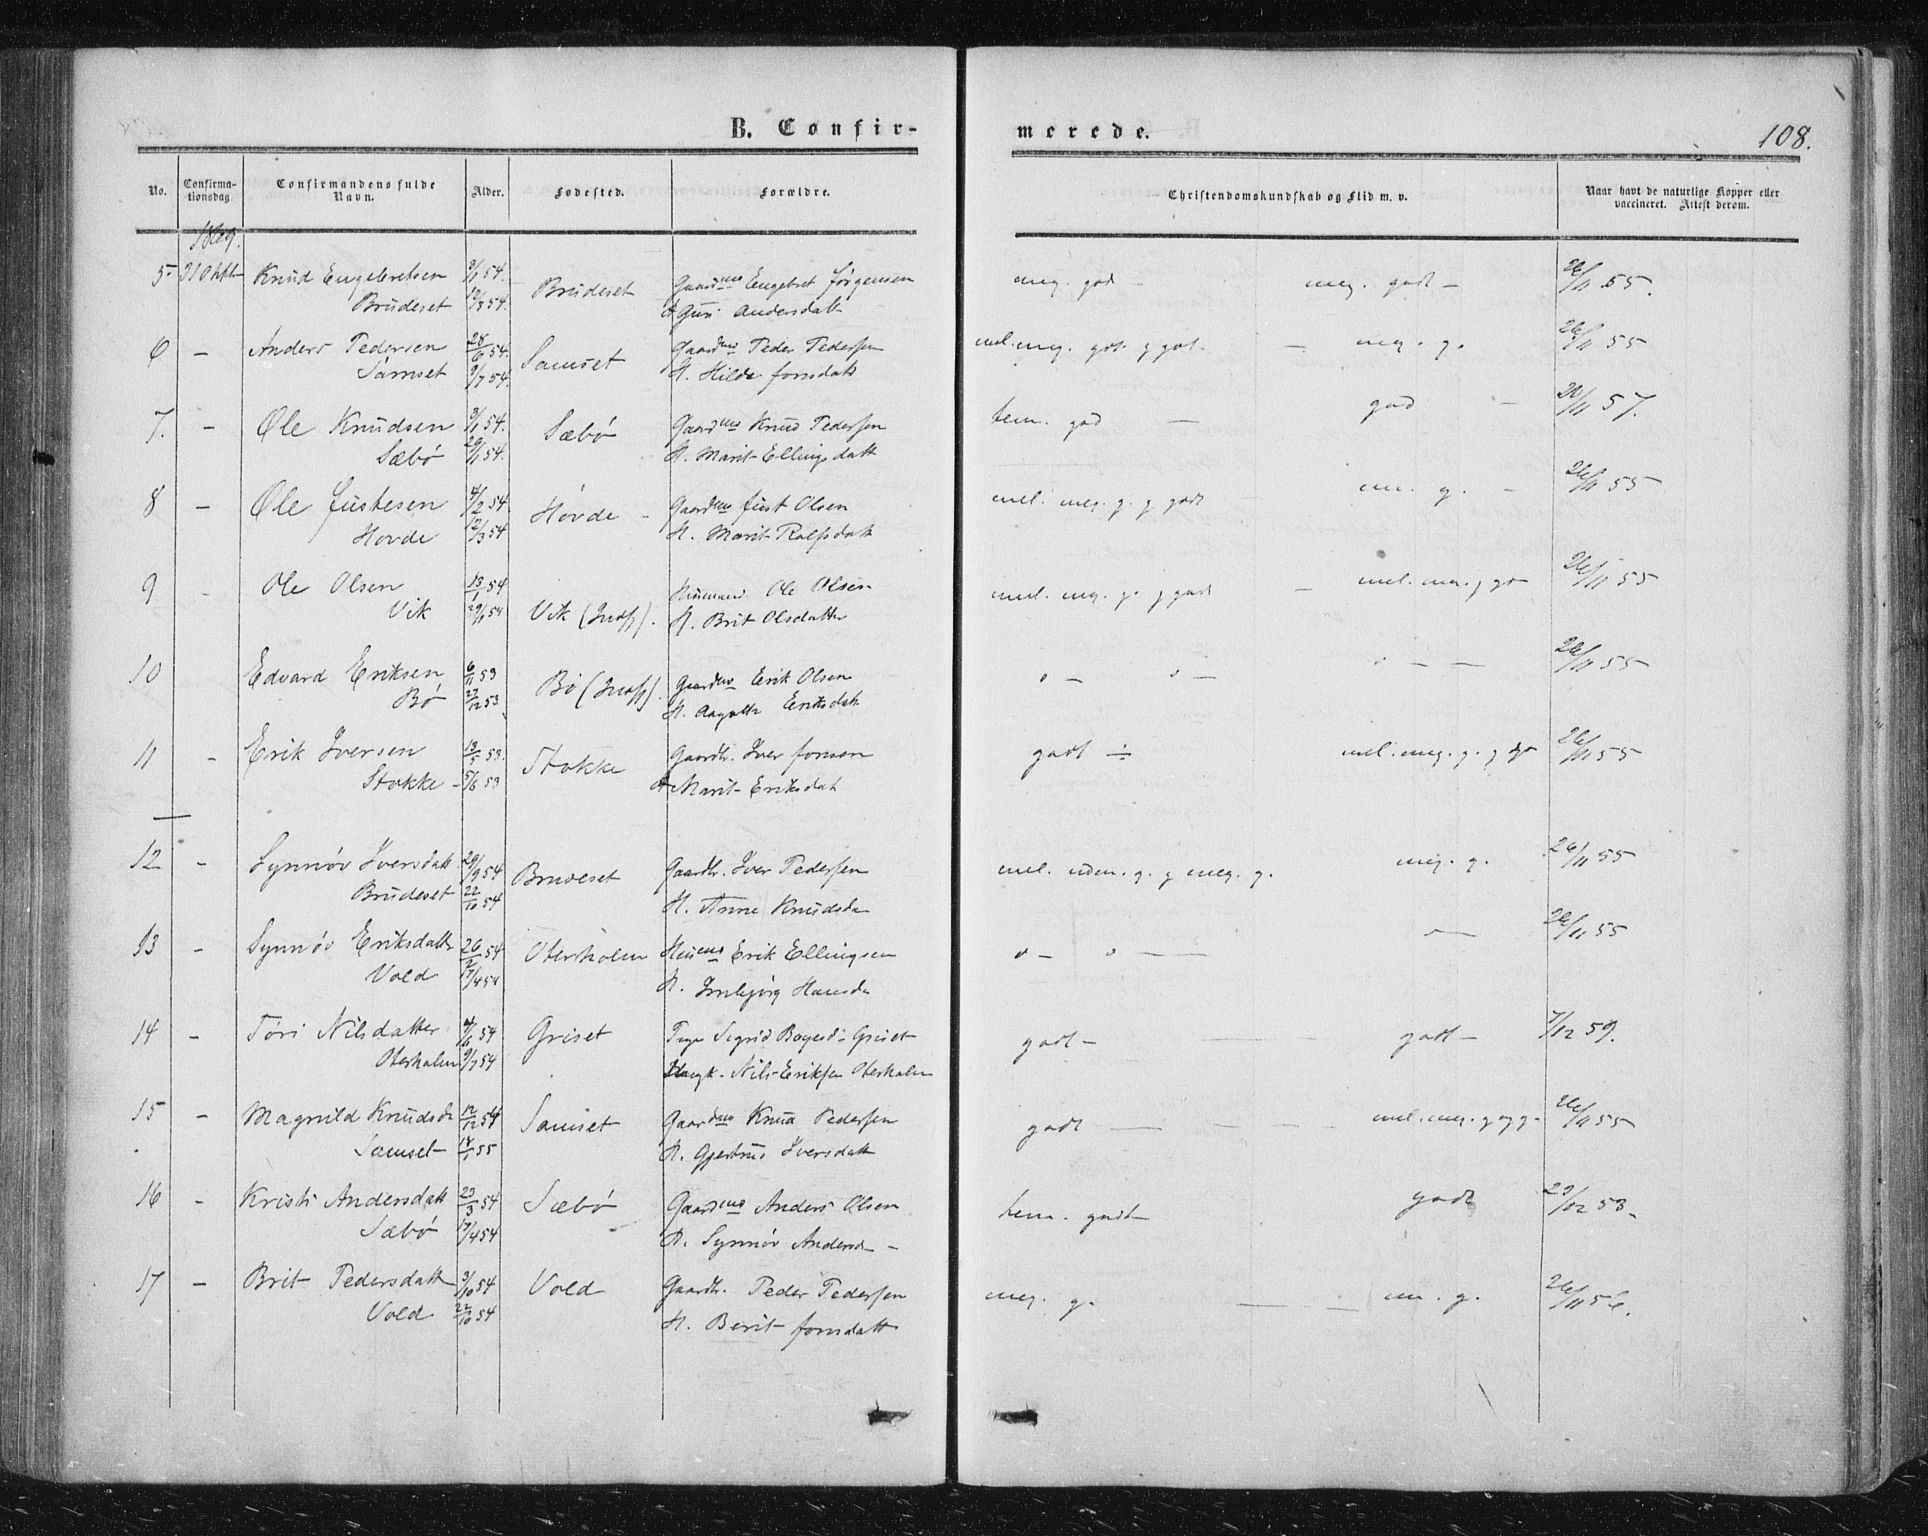 B. Confir-
merede.
108.
No.
Confirma-
tionsdag.
Confirmandens fulde
Navn.
Alder.
Fødested.
Forældre.
Christendomskundskab og Flid m. v.
Naar havt de naturlige Kopper eller
vaccineret. Attest derom.
1869.
5. Knud Engebretsen 54. Brudeset Gaardms Engebret Jørgensen meg. god - meg. godt - 26/11 55.
Brudeset 12/3 54. & Guri Andersdatt
6 - Anders Pedersen 28/6 54. Samset Gaardms Peder Pedersen mel. meg. got. g got. - meg. g. 26/11 55
Samset 9/7 54. H. Hilde Jonsdatt
7. - Ole Knudsen 3/1 54. Sæbø Gaardms Knud Pedersen tem. god - god - 57.
Sæbø 29/1 54. H. Marit Ellingsdatt
8 - Ole Justesen 4/2 54. Hovde - Gaardms Just Olsen mel. meg. g. g godt m. g. - 26/11 55
Hovde 12/3 54 H. Marit Rolfsdatt
9 - Ole Olsen 13/1 54 Vik Husmand Ole Olsen mel. meg. g. g godt - mel. meg. g go 26/11 55
Vik 29/1 54 H. Brit Olsdatter
10 Edvard Eriksen 6/11 53 Bø Gaardms Erik Olsen 26/11 55
Bø 27/12 53 H. Eriksdatt
11 - Erik Iversen 13/5 53. Stokke Gaardbr. Iver Jonsen godt ÷ mel. meg. g. g go 26/11 55
Stokke - 5/6 53 & Marit Eriksdat
12 - Synnøv Iversdatt 29/9 54 Brudeset Gaardbr. Iver Pedersen mel. udm. g. g meg. g. meg. g. 26/11 55
Brudeset 22/10 54 H. Anne Knudsda
13 - Synnøv Eriksdatter 26/2 54 Oterholm Husms Erik Ellingsen 26/11 55
Vold 17/4 54 H. Imbjørg Hansda
14 - Tøri Nilsdatter 4/6 54 Griset Sigrid Griset godt - godt - 7/12 59.
Oterholm 9/7 54 Ungk. Nils Eriksen Oterholm
15 - Magnild Knudsd 12/12 54 Samset Gaardms Knud Pedersen godt mel. meg. g og g - 26/11 55
Samset 14/1 55 H. Gjertrud Iversdatt
16 - Kristi Andersdatt 23/3 54 Sæbø Gaardms Anders Olsen tem. godt godt 29/12 58.
Sæbø 17/4 54 H. Synnøv Andersd -
17 - Brit Pedersdatt 3/10 54 Vold Gaardbr. Peder Pedersen meg. g. m. g. 26/11 56.
Vold 22/10 54 H. Berit Jonsdatt